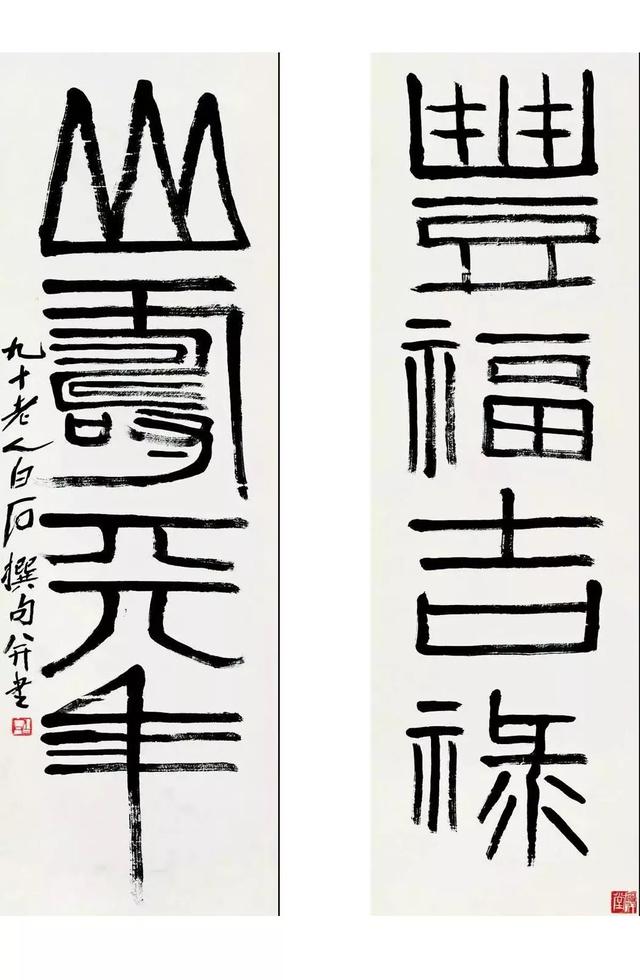 豐福吉祿
山壽年
九十老人白石撰句并書